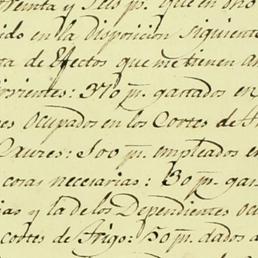 reinta y seis p.s que en
ido en la disposicion Siguiente
ta de Efectos que me tienen
rrientes: 370 p.s gastados en
es ocupados en los Cortes de
Caures: 100 p.s empleados en
cosas necesarias: 30 p.s
ias y la de los Dependientes
cortes de Trigo: 50 p.s dados